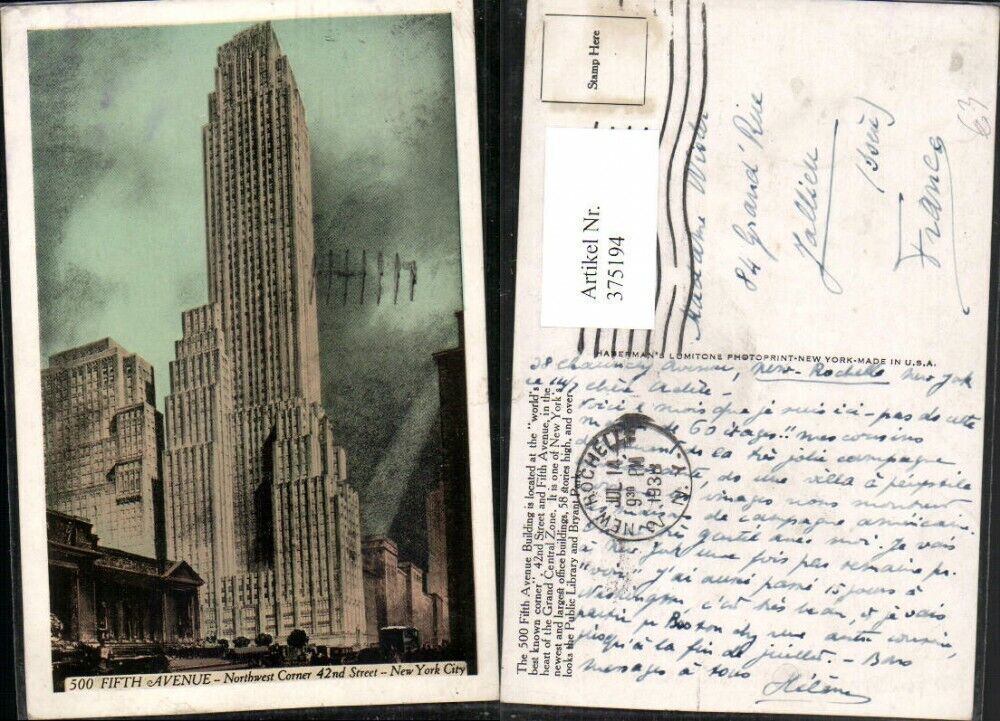 500 FIFTH AVENUE – Northwest Corner 42nd Street – New York City
Stamp Here
Artikel Nr.
375194
Madame
84 Grand'Rue
Jallieu
(Isère)
France
63
HABERMAN'S LUMITONE PHOTOPRINT-NEW YORK-MADE IN U.S.A.
The 500 Fifth Avenue Building is located at the "world's
best known corner", 42nd Street and Fifth Avenue, in the
heart of the Grand Central Zone. It is one of New York's
newest and largest office buildings, 58 stories high, and over-
looks the Public Library and Bryant Park.
NEW ROCHELLE
JUL 14
9 30 PM
1938
N.Y.
38 Chauncey Avenue, New-Rochelle New York
chère
Voici mois que je suis ici - pas de cette
de 60 étages!! mes cousins
la très jolie campagne
une villa
de campagne américain
gentil avec moi. Je vais
à New York une fois par semaine
"voir" j'ai aussi passé 15 jours à
Washington, c'est très beau, et je vais
partir Boston autre cousin,
jusqu'à la fin de juillet. - Bons
messages à tous
Hélène